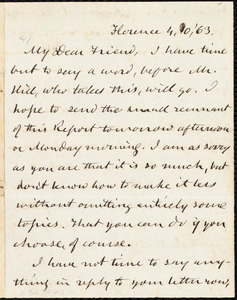 Florence 4, 10, '63.
My Dear Friend, I have time
but to say a word, before Mr.
Hill, who takes this, will go. I
hope to send the small remnant
of this Report tomorrow afternoon
or Monday morning. I am as sorry
as you are that it is so much, but
don't know how to make it less
without omitting entirely some
topics. That you can do if you
choose of course.
I have not time to say any-
thing in reply to your letter now,